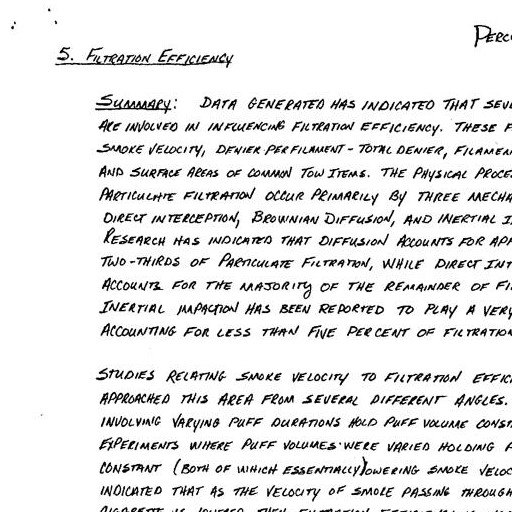 5. FILTRATION EFFICIENCY
SUMMARY: DATA GENERATED HAS INDICATED THAT
ARE INVOLVED IN INFLUENCING FILTRATION EFFICIENCY. THESE
SMOKE VELOCITY, DENIER PER FILAMENT - TOTAL DENIER,
AND SURFACE AREAS OF COMMON TOW ITEMS. THE PHYSICAL
PARTICULATE FILTRATION OCCUR PRIMARILY BY THREE
DIRECT INTERCEPTION, BROWNIAN DIFFUSION, AND INERTIAL
RESEARCH HAS INDICATED THAT DIFFUSION ACCOUNTS FOR
TWO-THIRDS OF PARTICULATE FILTRATION, WHILE DIRECT
ACCOUNTS FOR THE MAJORITY OF THE REMAINDER OF
INERTIAL IMPACTION HAS BEEN REPORTED TO PLAY A VERY
ACCOUNTING FOR LESS THAN FIVE PERCENT OF FILTRATION
STUDIES RELATING SMOKE VELOCITY TO FILTRATION
APPROACHED THIS AREA FROM SEVERAL DIFFERENT ANGLES.
INVOLVING VARYING PUFF DURATIONS HOLD PUFF VOLUME
EXPERIMENTS WHERE PUFF VOLUMES WERE VARIED HOLDING
CONSTANT (BOTH OF WHICH ESSENTIALLY) LOWERING SMOKE
INDICATED THAT AS THE VELOCITY OF SMOKE PASSING THROUGH